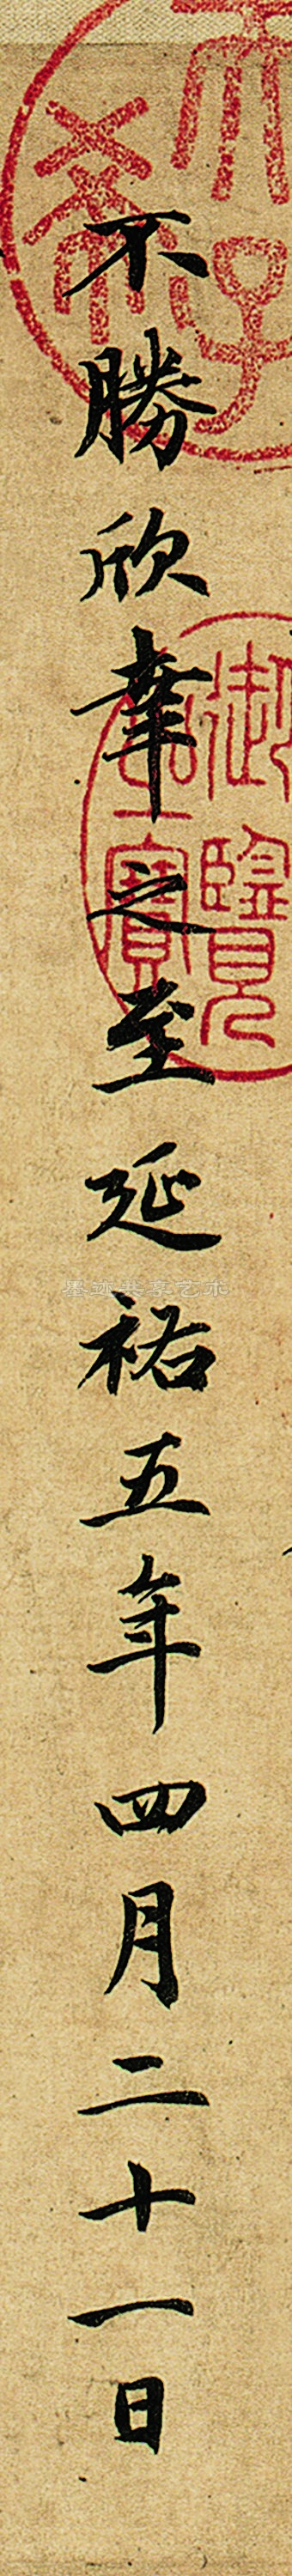 不勝欣幸之至延祐五年四月二十一日
御覽
寶
墨迹共享艺术